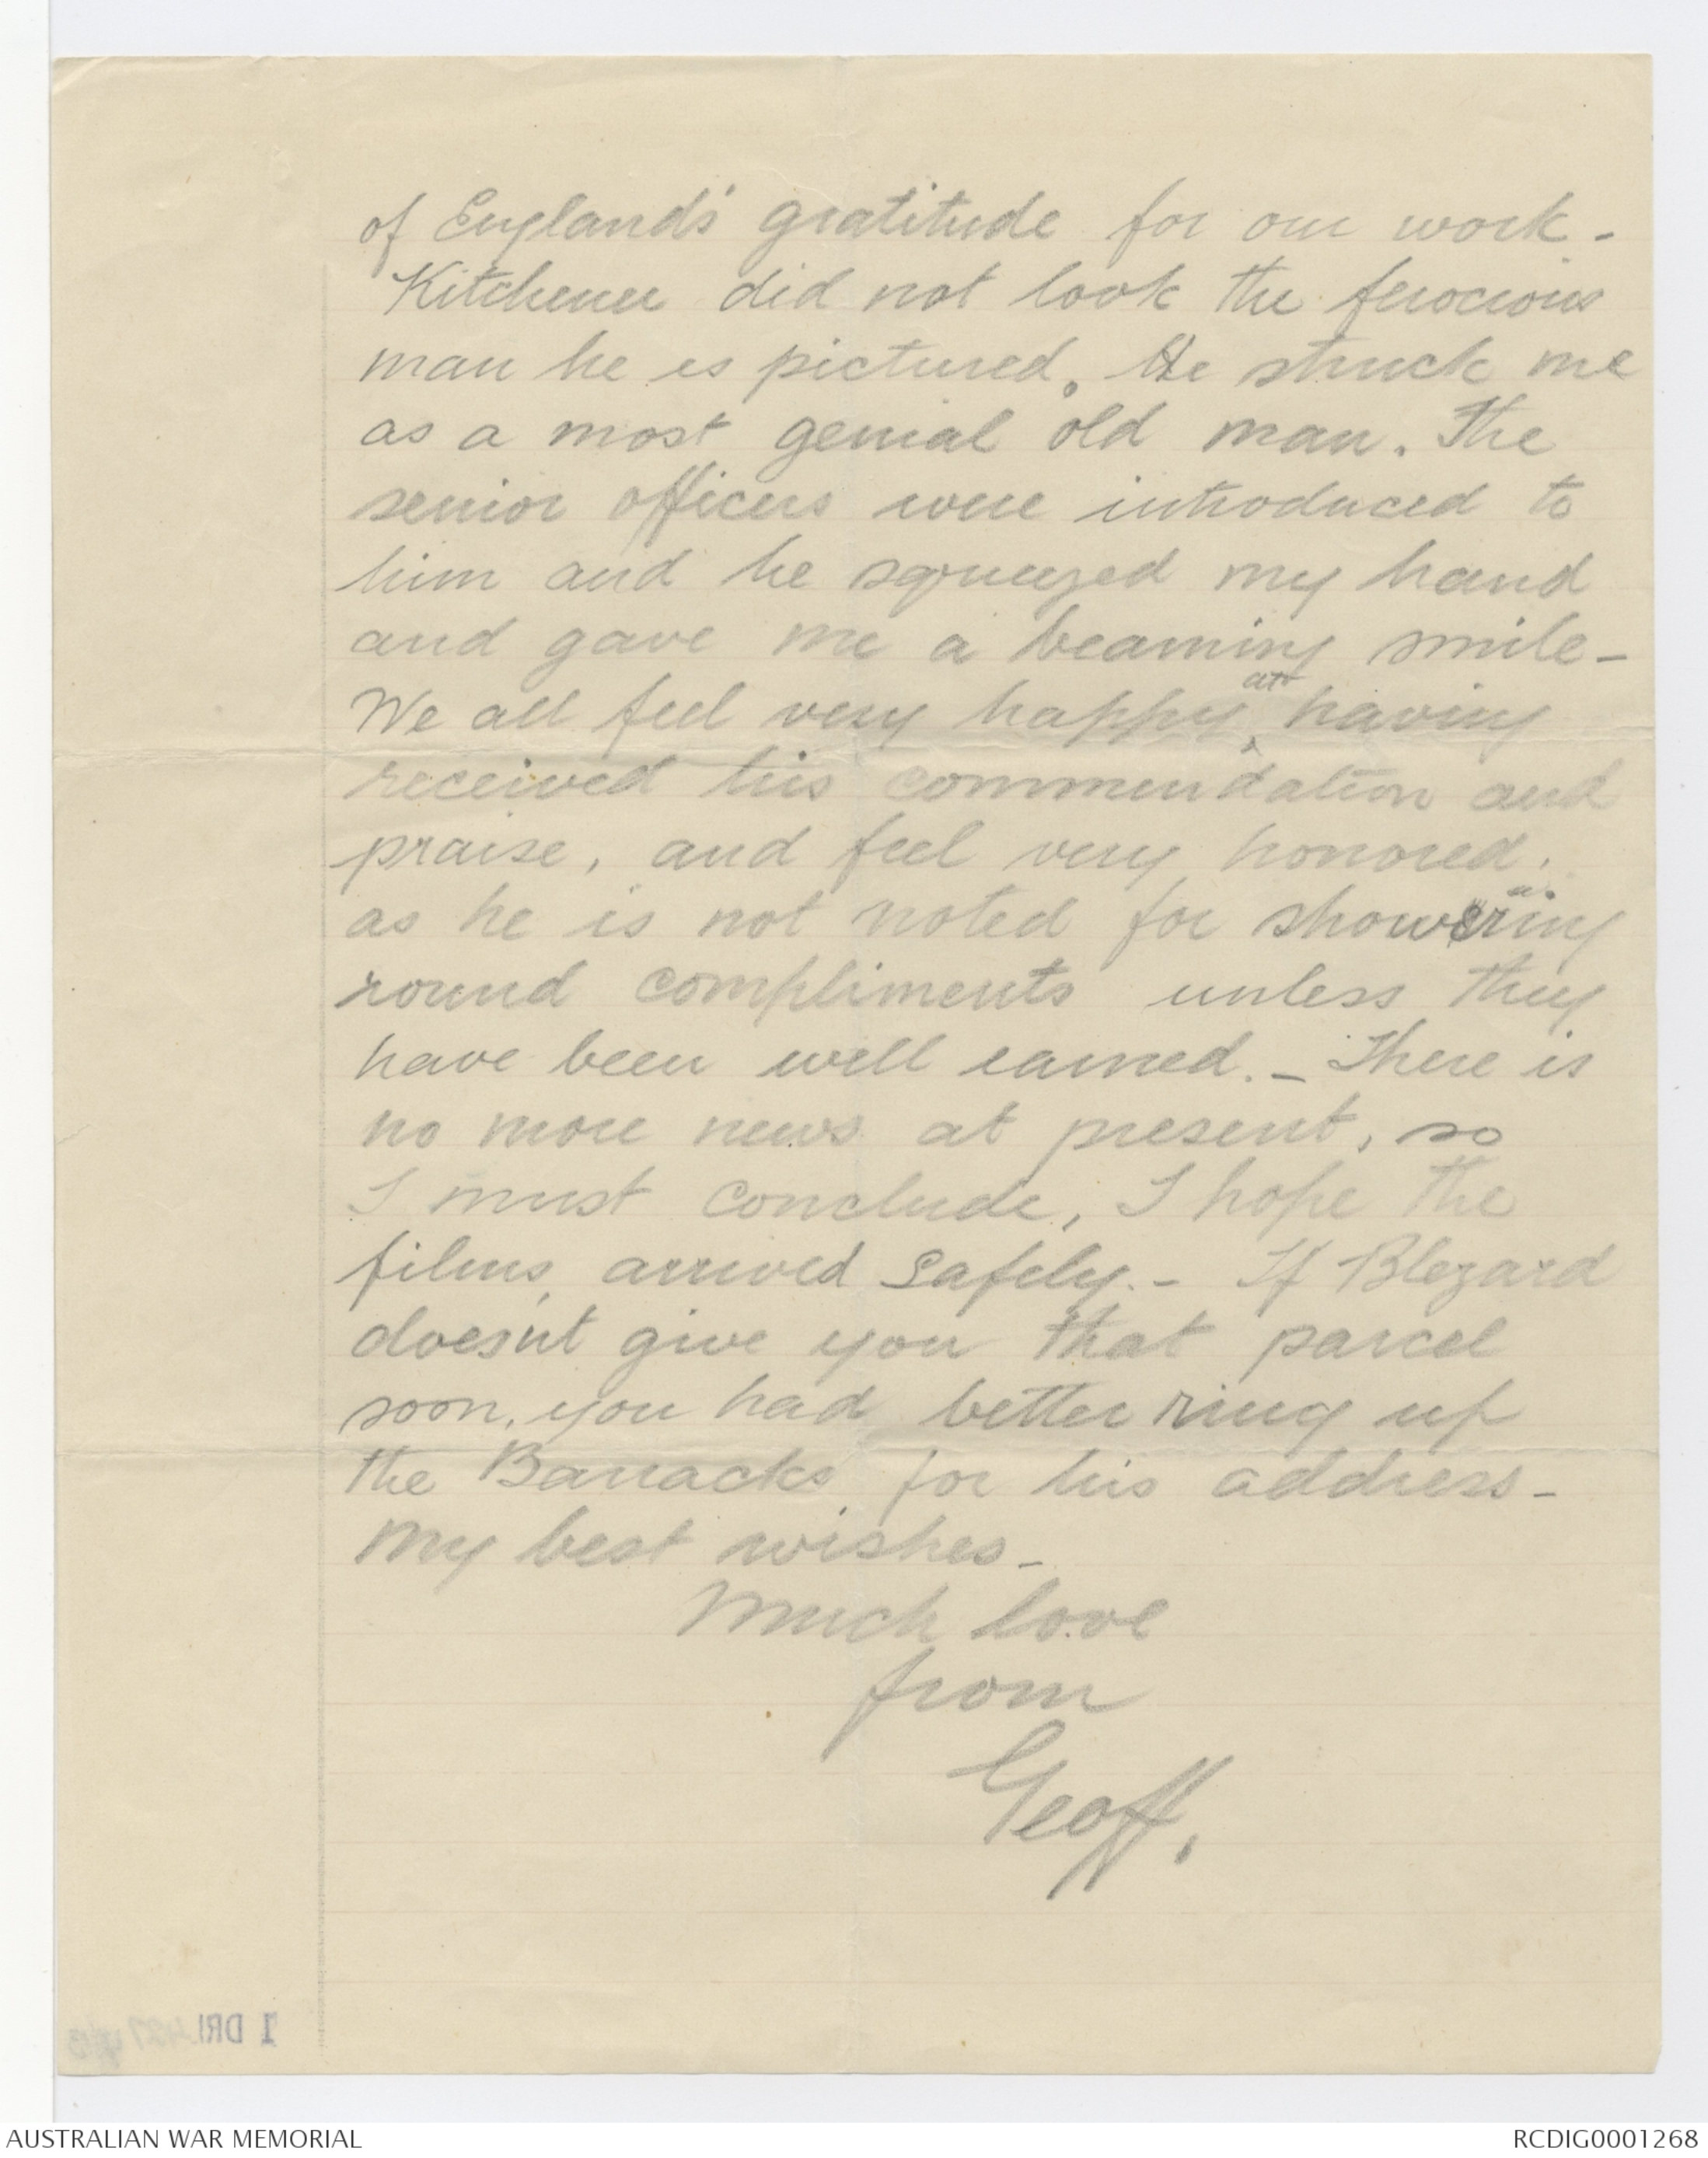 of England's gratitude for our work -
Kitchener did not look the ferocious
man he is pictured. He struck me
as a most genial old man. The
senior officers were introduced to
him and he squeezed my hand
and gave me a beaming smile -
We all feel very happy at having
received his commendation and
praise, and feel very honored,
as he is not noted for showering
round compliments unless they
have been well earned. - There is
no more news at present, so
I must conclude, I hope the
films, arrived safely. - If Blezard
does'nt give you that parcel
soon, you had better ring up
the Barracks for his address -
My best wishes -
Much love
from
Geoff.
1 DRL
AUSTRALIAN WAR MEMORIAL
RCDIG0001268